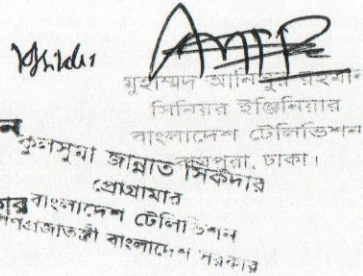 মুহাম্মদ আনিসুর রহমান
সিনিয়র ইঞ্জিনিয়ার
বাংলাদেশ টেলিভিশন
রামপুরা, ঢাকা।
কুলসুমা জান্নাত সিকদার
প্রোগ্রামার
বাংলাদেশ টেলিভিশন
গণপ্রজাতন্ত্রী বাংলাদেশ সরকার